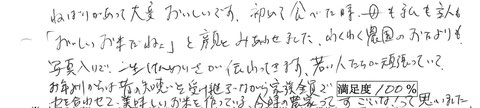 ねばりがあって大変おいしいです。初めて食べた時、私も主人も
「おいしいお米だね」と顔をみあわせました。わくわく農園のおたよりも
写真入りで、一生けんめいさが伝わってきます。若い人たちが頑張っていて
お年寄りからは昔の知恵を受け継ぎながら家族全員で
力を合わせて美味しいお米を作っている、今時の農家ってすごいなって思いました
満足度100%